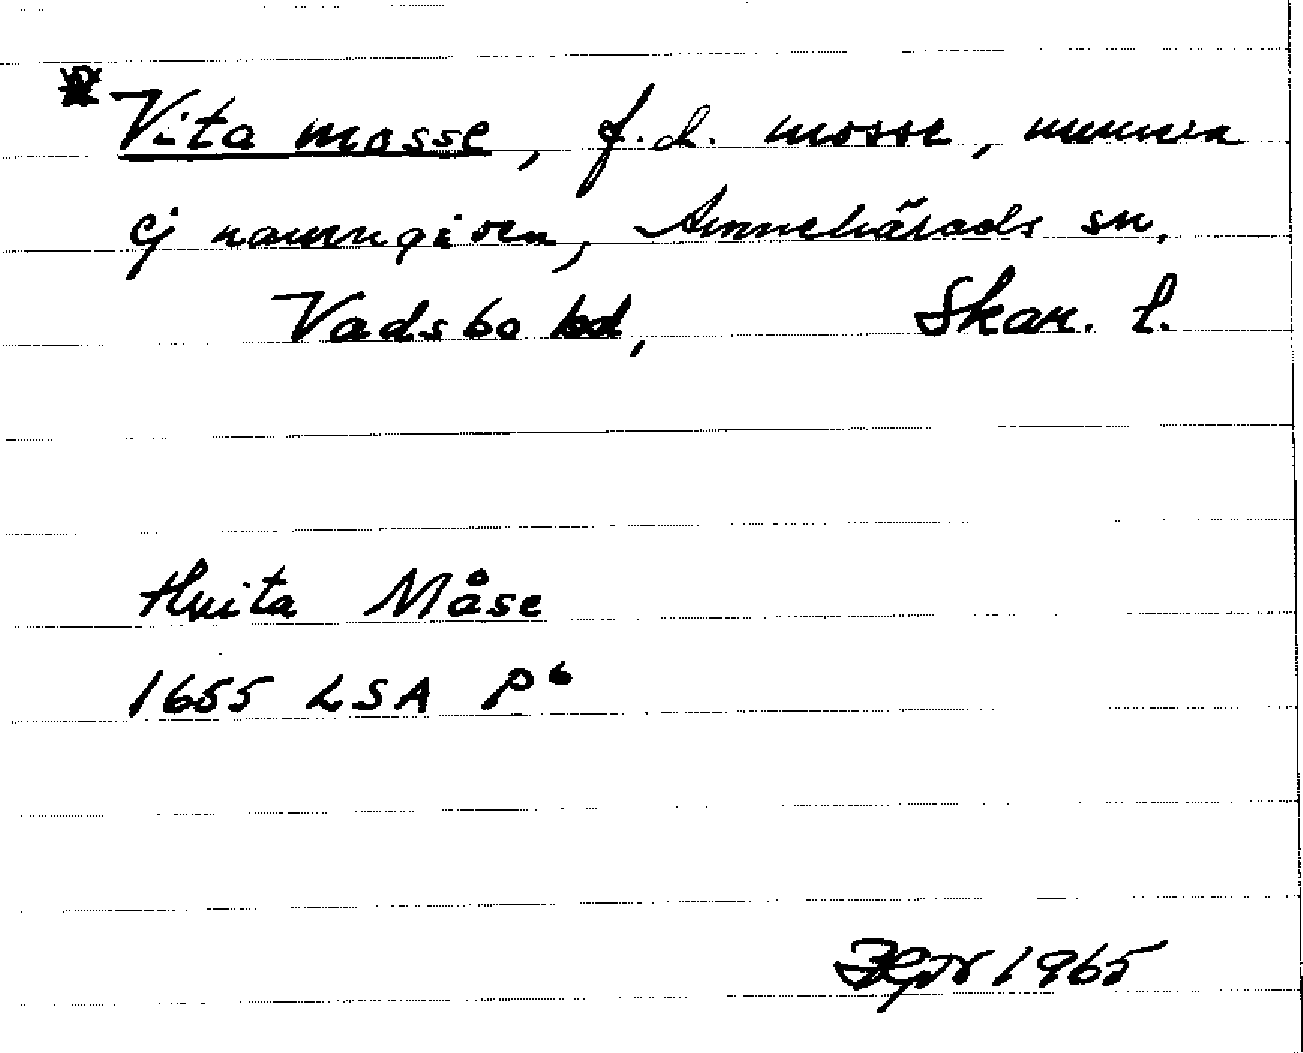 * Vita mosse, f.d. mosse, numera
ej namngiven, Amnehärads sn,
Vadsbo hd, Skar. l.
Hvita Måse
1655 LSA P6
1965